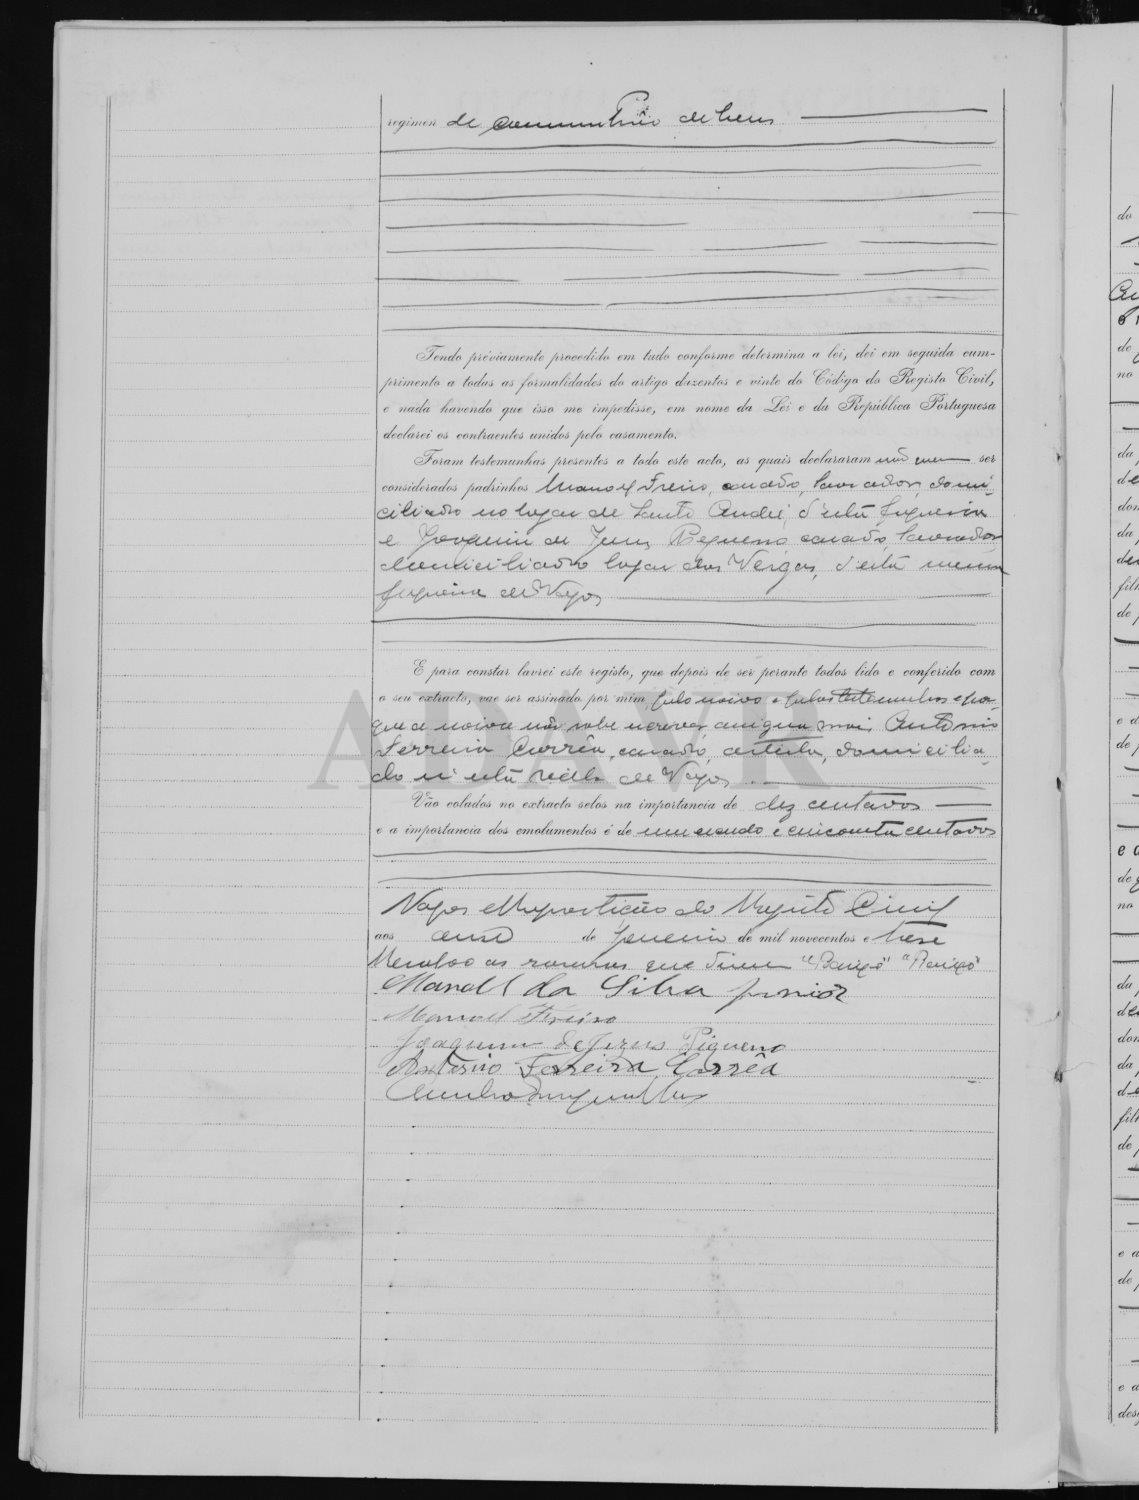 regimen de communhão de bens
Tendo préviamente procedido em tudo conforme determina a lei, dei em seguida cum-
primento a todas as formalidades do artigo duzentos e vinte do Código do Registo Civil,
e nada havendo que isso me impedisse, em nome da Lei e da República Portuguesa
declarei os contraentes unidos pelo casamento.
Foram testemunhas presentes a todo este acto, as quais declararam não querer ser
considerados padrinhos Manoel Freire, casado, lavrador, domi-
ciliado no logar de Santo André, d'esta freguesia
e Joaquim de Jesus Pequeno casado, lavrador
domiciliado logar das Vergas, d'esta mesma
freguesia de Vagos
E para constar lavrei este registo, que depois de ser perante todos lido e conferido com
o seu extracto, vae ser assinado por mim, pelo noivo e pelas testemunhas e por-
que a noiva não sabe escrever Antonio
Ferreira Corrêa, casado, artista, domicilia-
do n'esta villa de Vagos
Vão colados no extracto selos na importancia de dez centavos
e a importancia dos emolumentos é de um escudo e cincoenta centavos
Vagos e Repartição do Registo Civil
aos onze de Janeiro de mil novecentos e treze
Resalvo as rasuras que dizem
Manoel da Silva junior
Manoel Freire
Joaquim de Jezus Piqueno
Antonio Ferreira Corrêa
ADAVR